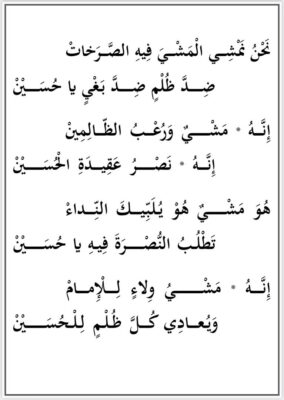 نَحْنُ نَمْشِي الْمَشْيَ فِيهِ الصَّرَخَاتْ
ضِدَّ ظُلْمٍ ضِدَّ بَغْيٍ يا حُسَيْنْ
إِنَّهُ * مَشْيٌ وَرُعْبُ الظَّالِمِينْ
إِنَّهُ * نَصْرُ عَقِيدَةِ الْحُسَيْنْ
هُوَ مَشْيٌ هُوْ يُلَبِّيكَ النِّداءْ
تَطْلُبُ النُّصْرَةَ فِيهِ يا حُسَيْنْ
إِنَّهُ * مَشْيُ وِلاءٍ لِلْإِمامْ
وَيُعادِي كُلَّ ظُلْمٍ لِلْحُسَيْنْ